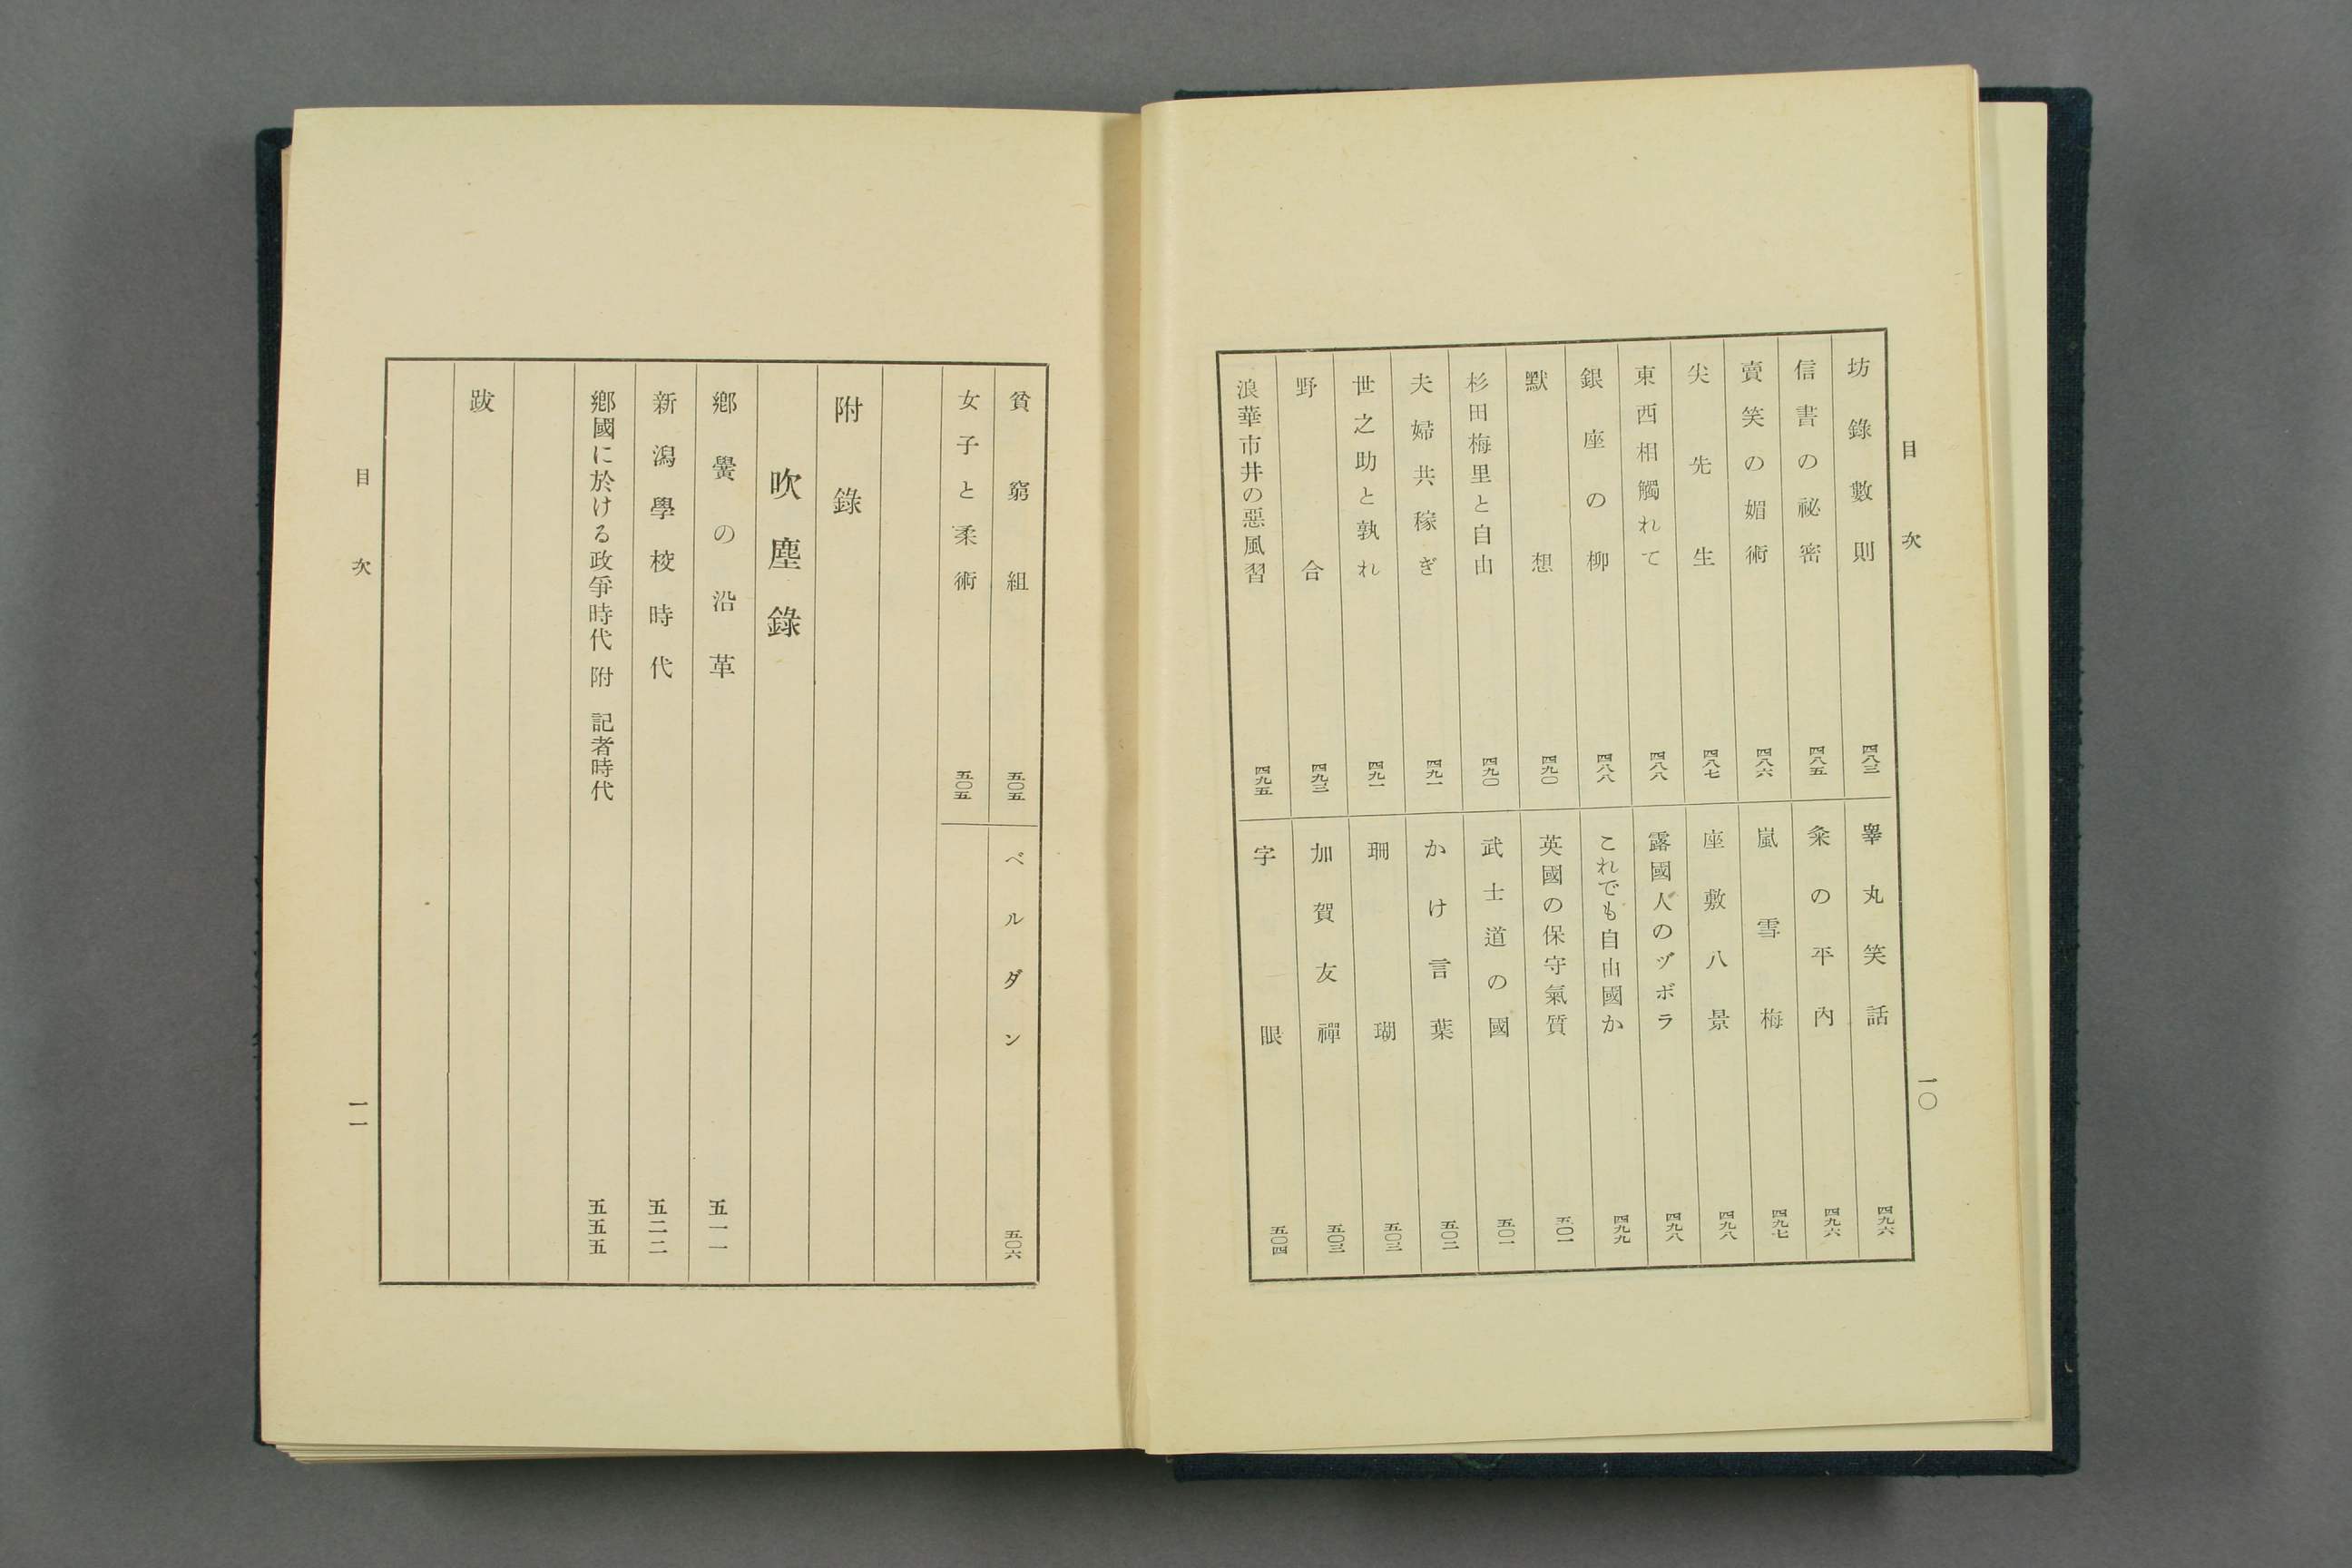 目次
坊錄數則 四八三
信書の祕密 四八五
賣笑の媚術 四八六
尖先生 四八七
東西相觸れて 四八八
銀座の柳 四八八
默想 四九〇
杉田梅里と自由 四九〇
夫婦共稼ぎ 四九一
世之助と孰れ 四九一
野合 四九三
浪華市井の惡風習 四九五
睾丸笑話 四九六
粂の平內 四九六
嵐雪梅 四九七
座敷八景 四九八
露國人のヅボラ 四九八
これでも自由國か 四九九
英國の保守氣質 五〇一
武士道の國 五〇一
かけ言葉 五〇二
珊瑚 五〇三
加賀友禪 五〇三
字眼 五〇四
一〇
貧窮組 五〇五
女子と柔術 五〇五
ベルダン 五〇六
附錄
吹塵錄
鄕黌の沿革 五一一
新潟學校時代 五二二
鄕國に於ける政爭時代 附 記者時代 五五五
跋
目次
一一